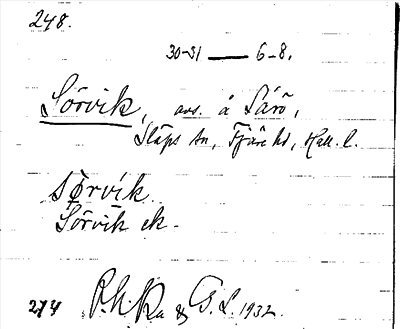 248.
30-31 — 6-8.
Sörvik, avs. å Särö,
Släps sn, Fjäre hd, Hall. l.
sørvik.
Sörvik ek.
274 G. L. 1932.